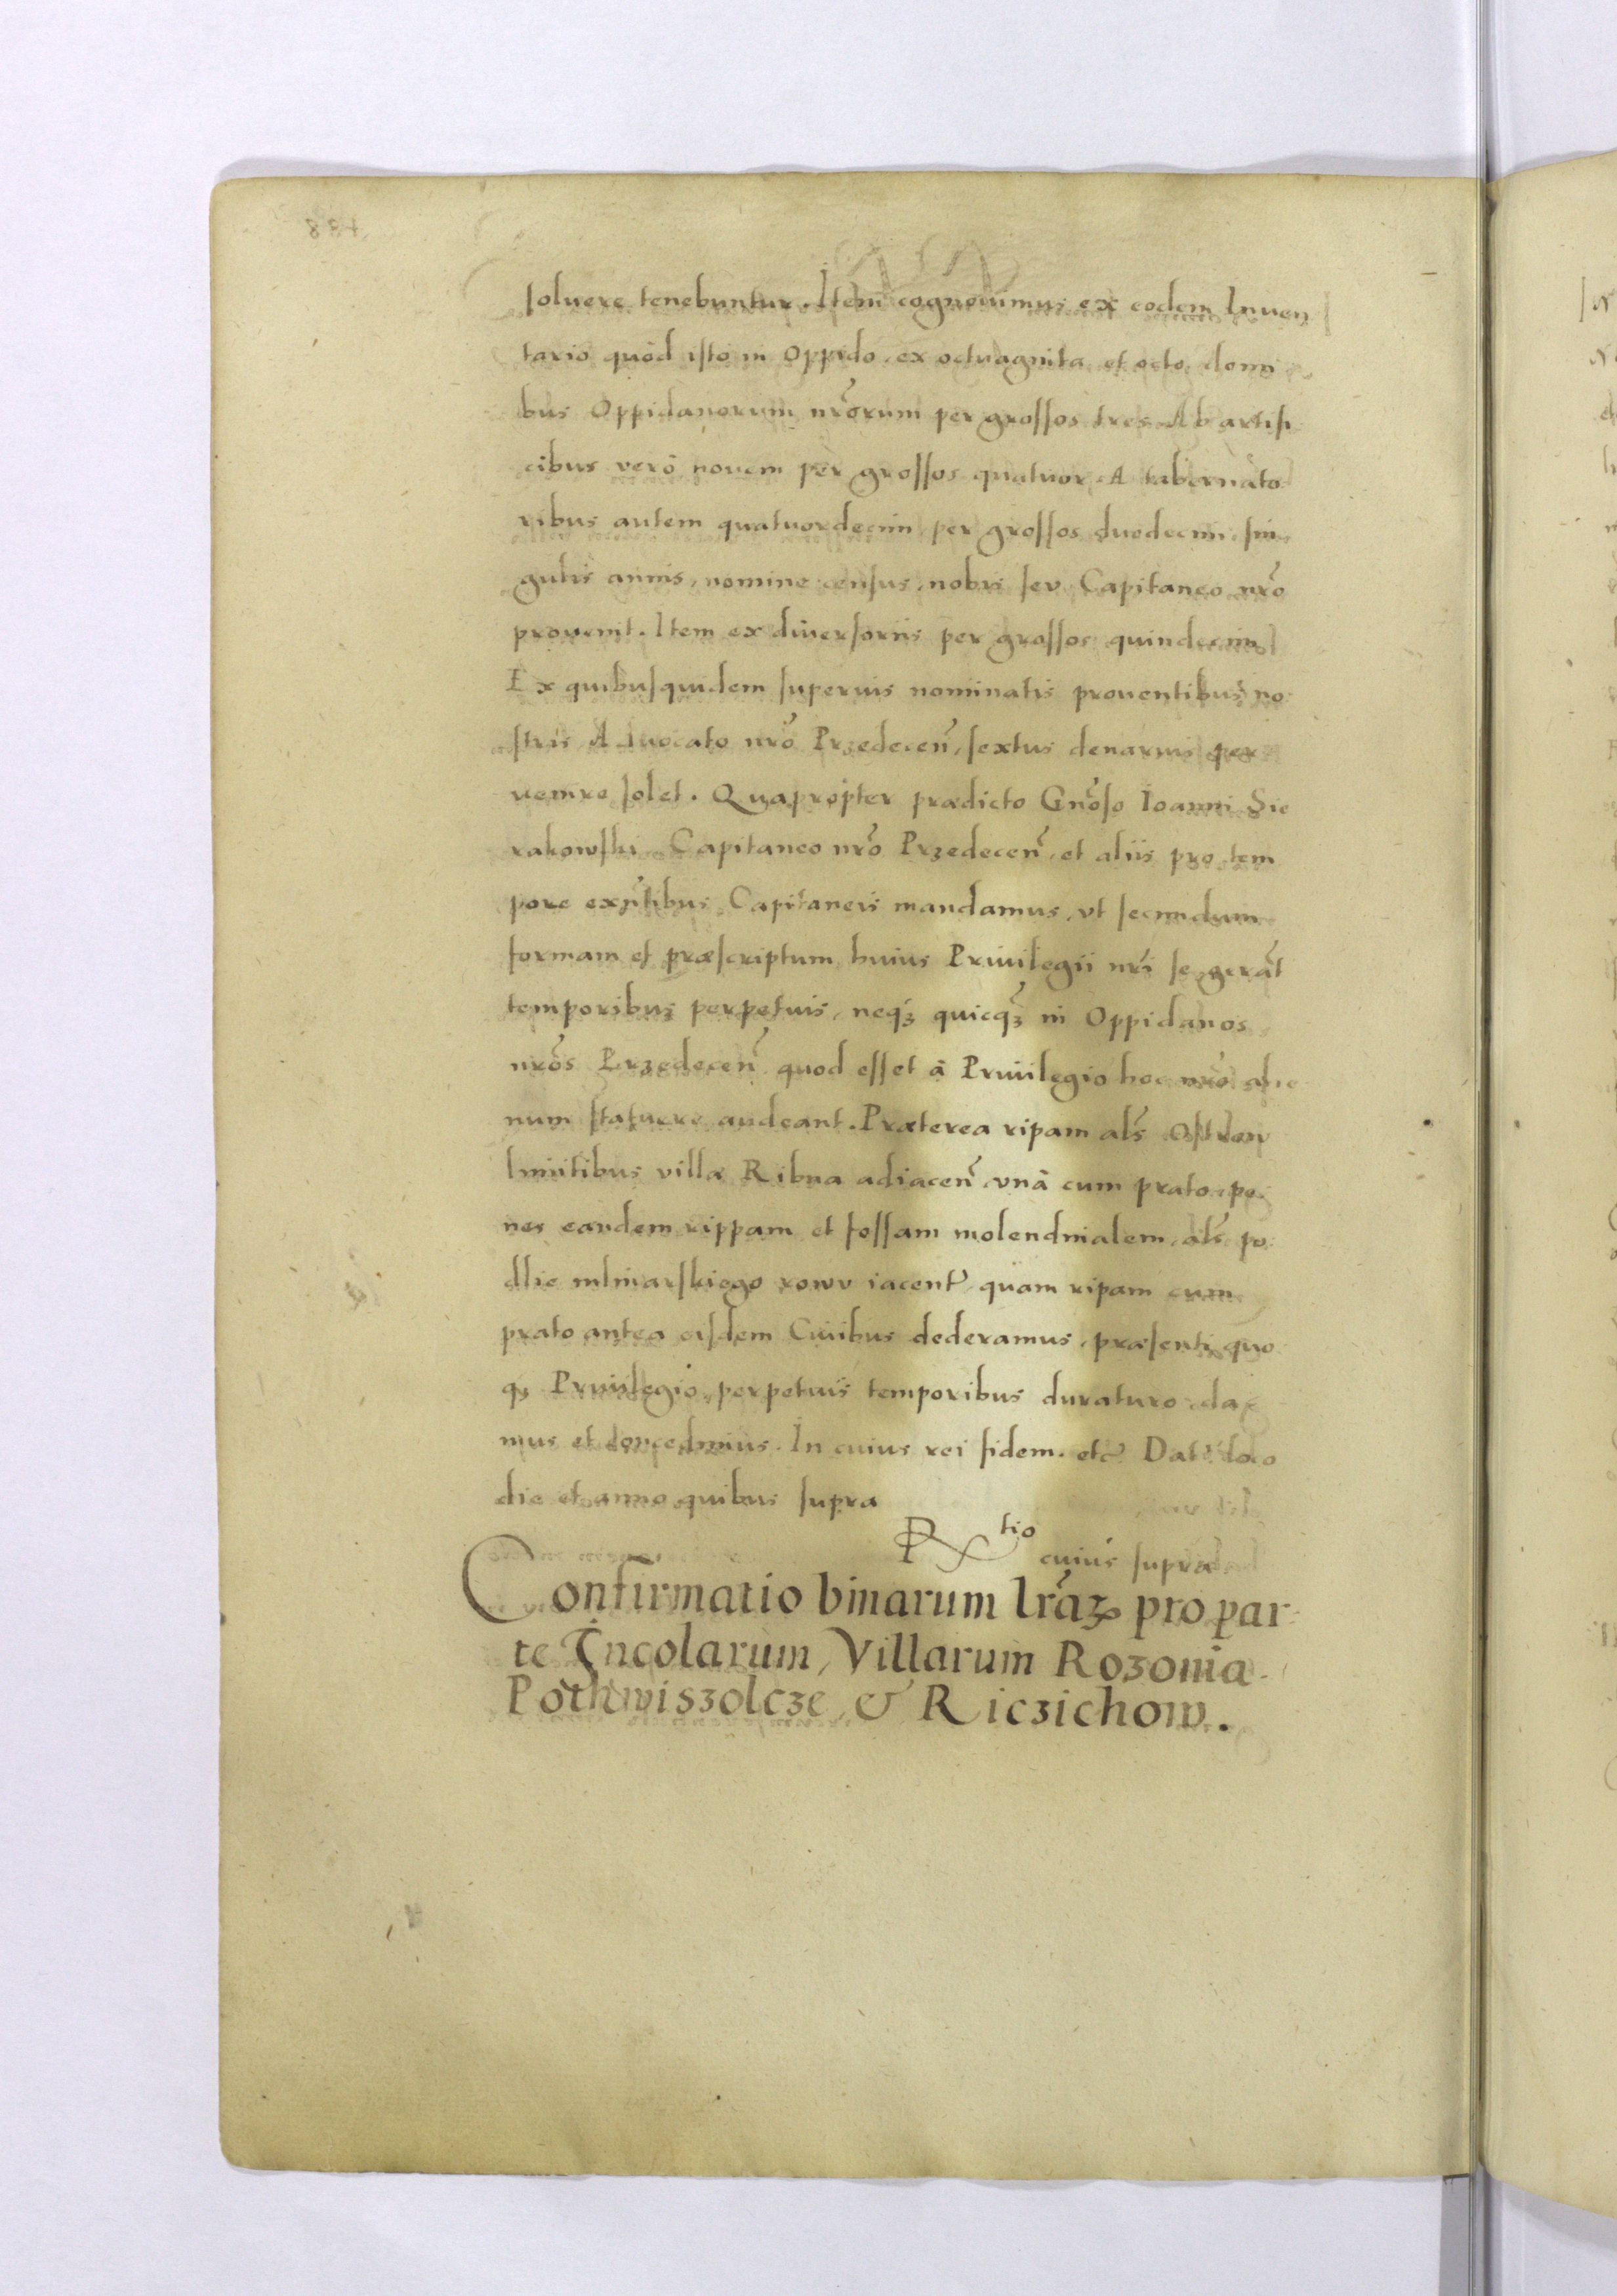 soluere tenebuntur. Item cognouimus ex eodem Inuen
tario quòd isto in Oppido, ex octuaginta et octo domi
bus Oppidanorum nr̃orum per grossos tres Ab artifi
cibus verò nouem per grossos quatuor A tabernato
ribus autem quatuordecim, per grossos duodecim, sin
gulis annis, nomine census, nobis seu Capitaneo nr̃o
prouenit. Item ex diuersoriis per grossos quindecim
Ex quibusquidem superius nominatis prouentibus no
stris Aduocato nr̃o Przedeceñ, sextus denarius per
uenire solet. Quapropter prædicto Gnõso Ioanni Sie
rakowski Capitaneo nr̃o Przedeceñ, et aliis pro tem
pore exñtibus Capitaneis mandamus, vt secundum
formam et præscriptum huius Priuilegii nr̃i se gerãt
temporibus perpetuis, neqꝫ quicqꝫ in Oppidanos
nr̃os Przedeceñ quod esset à Priuilegio hoc nr̃o alie
num statuere audeant. Præterea ripam al̃s Ostrow
limitibus villæ Ribna adiaceñ, vnà cum prato pe
nes eandem rippam et fossam molendinalem, al̃s po
dlie mlinarskiego rowu iacent̃ quam ripam cum
prato antea eisdem Ciuibus dederamus, præsenti quo
qꝫ Priuilegio, perpetuis temporibus duraturo da
mus et concedimus. In cuius rei fidem. etc̃ Dat̃ loco
die et anno quibus supra
R tio cuius supra
Confirmatio binarum lr̃aꝝ pro par
te Incolarum, Villarum Rozonia
Pothwiszolcze, & Riczichow.